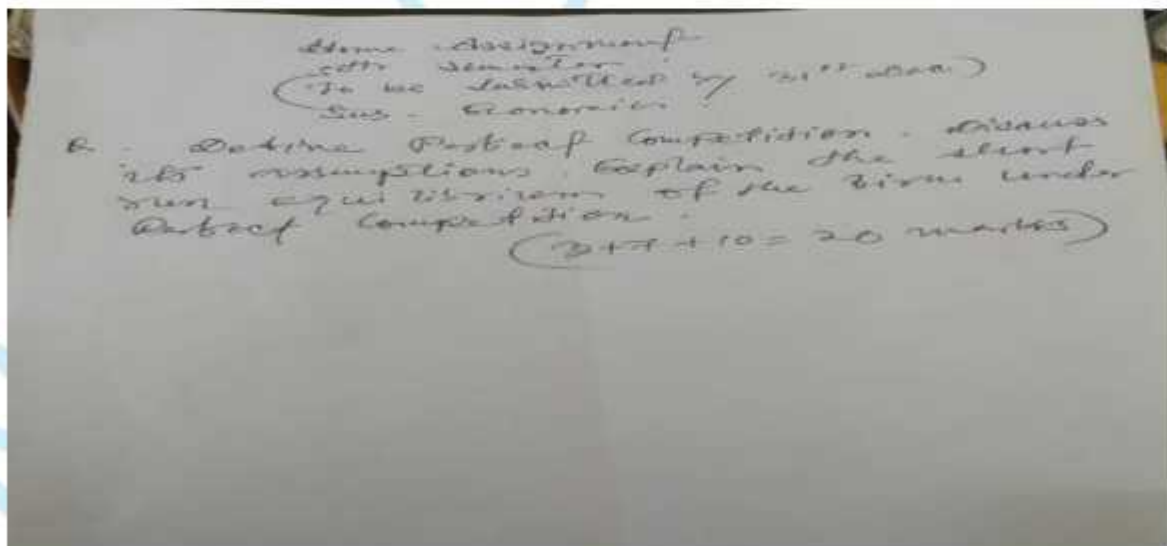 Home Assignment
Semester
(To be submitted by 31st Dec.)
Sub - Economics
Q. Define Perfect Competition. Discuss
its assumptions. Explain the short
run equilibrium of the firm under
Perfect Competition.
(3+7+10=20 marks)